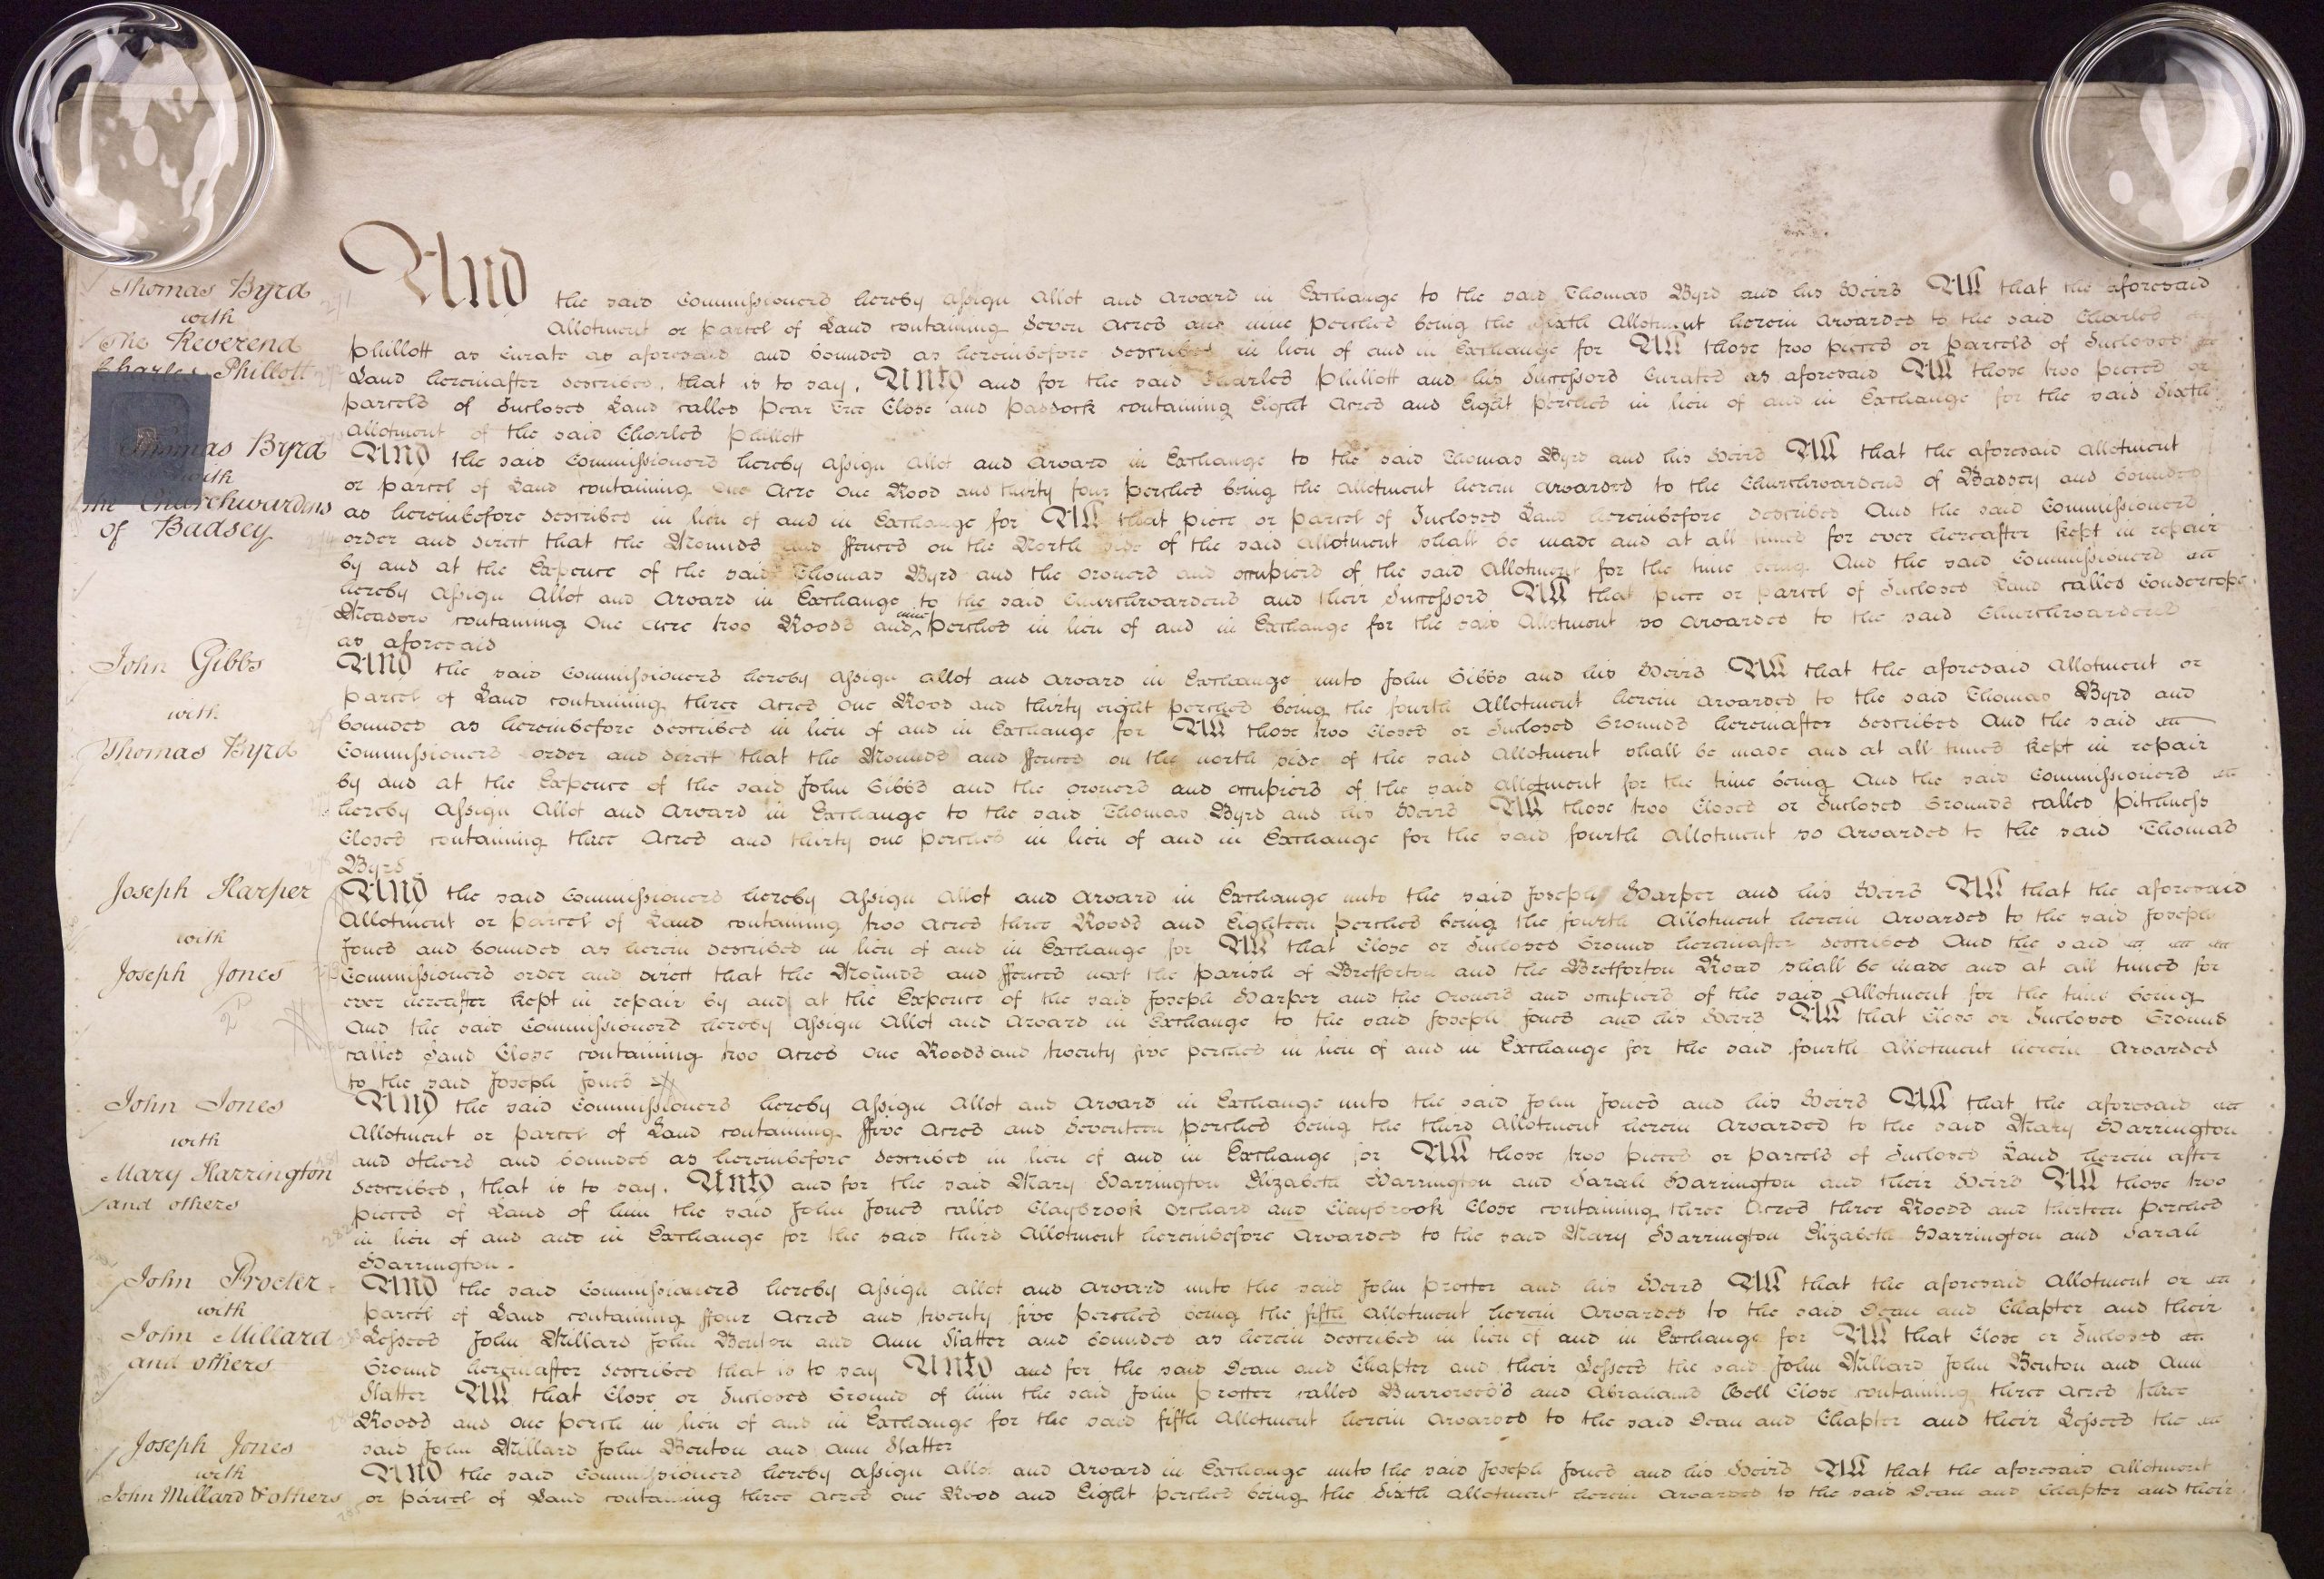 Thomas Byrd
with
The Reverend
Charles Phillott
And the said Commissioners hereby assign Allot and Award in Exchange to the said Thomas Byrd and his Heirs All that the aforesaid
Allotment or parcel of Land containing Seven Acres and nine perches being the sixth Allotment herein Awarded to the said Charles
Phillott as Curate as aforesaid and bounded as hereinbefore described in lieu of and in Exchange for All those two pieces or parcels of Inclosed
Land hereinafter described, that is to say, Unto and for the said Charles Phillott and his Successors Curates as aforesaid All those two pieces or
parcels of Inclosed Land called Pear Tree Close and Paddock containing Eight Acres and Eight perches in lieu of and in Exchange for the said Sixth
Allotment of the said Charles Phillott
Thomas Byrd
with
the Churchwardens
of Badsey
And the said Commissioners hereby Assign Allot and Award in Exchange to the said Thomas Byrd and his Heirs All that the aforesaid Allotment
or parcel of Land containing One Acre One Rood and thirty four perches being the Allotment herein awarded to the Churchwardens of Badsey and bounded
as hereinbefore described in lieu of and in Exchange for All that piece or parcel of Inclosed Land hereinbefore described And the said Commissioners
order and direct that the Mounds and ffences on the North side of the said Allotment shall be made and at all times for ever hereafter kept in repair
by and at the Expence of the said Thomas Byrd and the owners and occupiers of the said Allotment for the time being And the said Commissioners
hereby Assign Allot and Award in Exchange to the said Churchwardens and their Successors All that piece or parcel of Inclosed Land called
Meadow containing One Acre two Roods and nine perches in lieu of and in Exchange for the said Allotment so awarded to the said Churchwardens
as aforesaid
John Gibbs
with
Thomas Byrd
And the said Commissioners hereby assign allot and award in Exchange unto John Gibbs and his Heirs All that the aforesaid Allotment or
parcel of Land containing three Acres One Rood and thirty eight perches being the fourth Allotment herein awarded to the said Thomas Byrd and
bounded as hereinbefore described in lieu of and in Exchange for All those two Closes or Inclosed Grounds hereinafter described And the said
Commissioners order and direct that the Mounds and ffences on the north side of the said Allotment shall be made and at all times kept in repair
by and at the Expence of the said John Gibbs and the owners and occupiers of the said allotment for the time being And the said Commissioners
hereby Assign Allot and Award in Exchange to the said Thomas Byrd and his Heirs All those two Closes or Inclosed Grounds called Pitchness
Closes containing three Acres and thirty one perches in lieu of and in Exchange for the said fourth allotment so Awarded to the said Thomas
Byrd
Joseph Harper
with
Joseph Jones
And the said Commissioners hereby Assign Allot and Award in Exchange unto the said Joseph Harper and his Heirs All that the aforesaid
Allotment or parcel of Land containing two Acres three Roods and Eighteen perches being the fourth Allotment herein Awarded to the said Joseph
Jones and bounded as herein described in lieu of and in Exchange for All that Close or Inclosed Ground hereinafter described And the said
Commissioners order and direct that the Mounds and ffences next the parish of Bretforton and the Bretforton Road shall be made and at all times for
ever hereafter kept in repair by and at the Expence of the said Joseph Harper and the Owners and occupiers of the said Allotment for the time being
And the said Commissioners hereby Assign Allot and Award in Exchange to the said Joseph Jones and his Heirs All that Close or Inclosed Ground
called Sand Close containing two Acres One Roods and twenty five perches in lieu of and in Exchange for the said fourth Allotment herein Awarded
to the said Joseph Jones
John Jones
with
Mary Harrington
and others
And the said Commissioners hereby Assign Allot and Award in Exchange unto the said John Jones and his Heirs All that the aforesaid
Allotment or parcel of Land containing ffive Acres and Seventeen perches being the third Allotment herein Awarded to the said Mary Harrington
and others and bounded as hereinbefore described in lieu of and in Exchange for All those two pieces or parcels of Inclosed Land herein after
described, that is to say, Unto and for the said Mary Harrington Elizabeth Harrington and Sarah Harrington and their Heirs All those two
pieces of Land of him the said John Jones called Claybrook Orchard and Claybrook Close containing three Acres three Roods and thirteen perches
in lieu of and and in Exchange for the said third Allotment hereinbefore Awarded to the said Mary Harrington Elizabeth Harrington and Sarah
Harrington.
John Procter
with
John Millard
and others
And the said Commissioners hereby Assign allot and award unto the said John Procter and his Heirs All that the aforesaid Allotment or
parcel of Land containing ffour Acres and twenty five perches being the fifth Allotment herein Awarded to the said Dean and Chapter and their
Lessees John Millard John Benton and Ann Slatter and bounded as herein described in lieu of and in Exchange for All that Close or Inclosed
Ground hereinafter described that is to say Unto and for the said Dean and Chapter and their Lessees the said John Millard John Benton and Ann
Slatter All that Close or Inclosed Ground of him the said John Procter called and Abrahams Close containing three Acres three
Roods and One perch in lieu of and in Exchange for the said fifth Allotment herein awarded to the said Dean and Chapter and their Lessees the
said John Millard John Benton and Ann Slatter
Joseph Jones
with
John Millard & others
And the said Commissioners hereby Assign Allot and Award in Exchange unto the said Joseph Jones and his Heirs All that the aforesaid Allotment
or parcel of Land containing three Acres one Rood and Eight perches being the Sixth Allotment herein awarded to the said Dean and Chapter and their